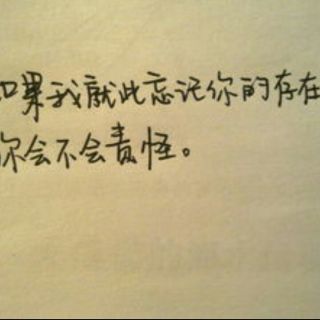 如果我就此忘记你的存在
你会不会责怪。